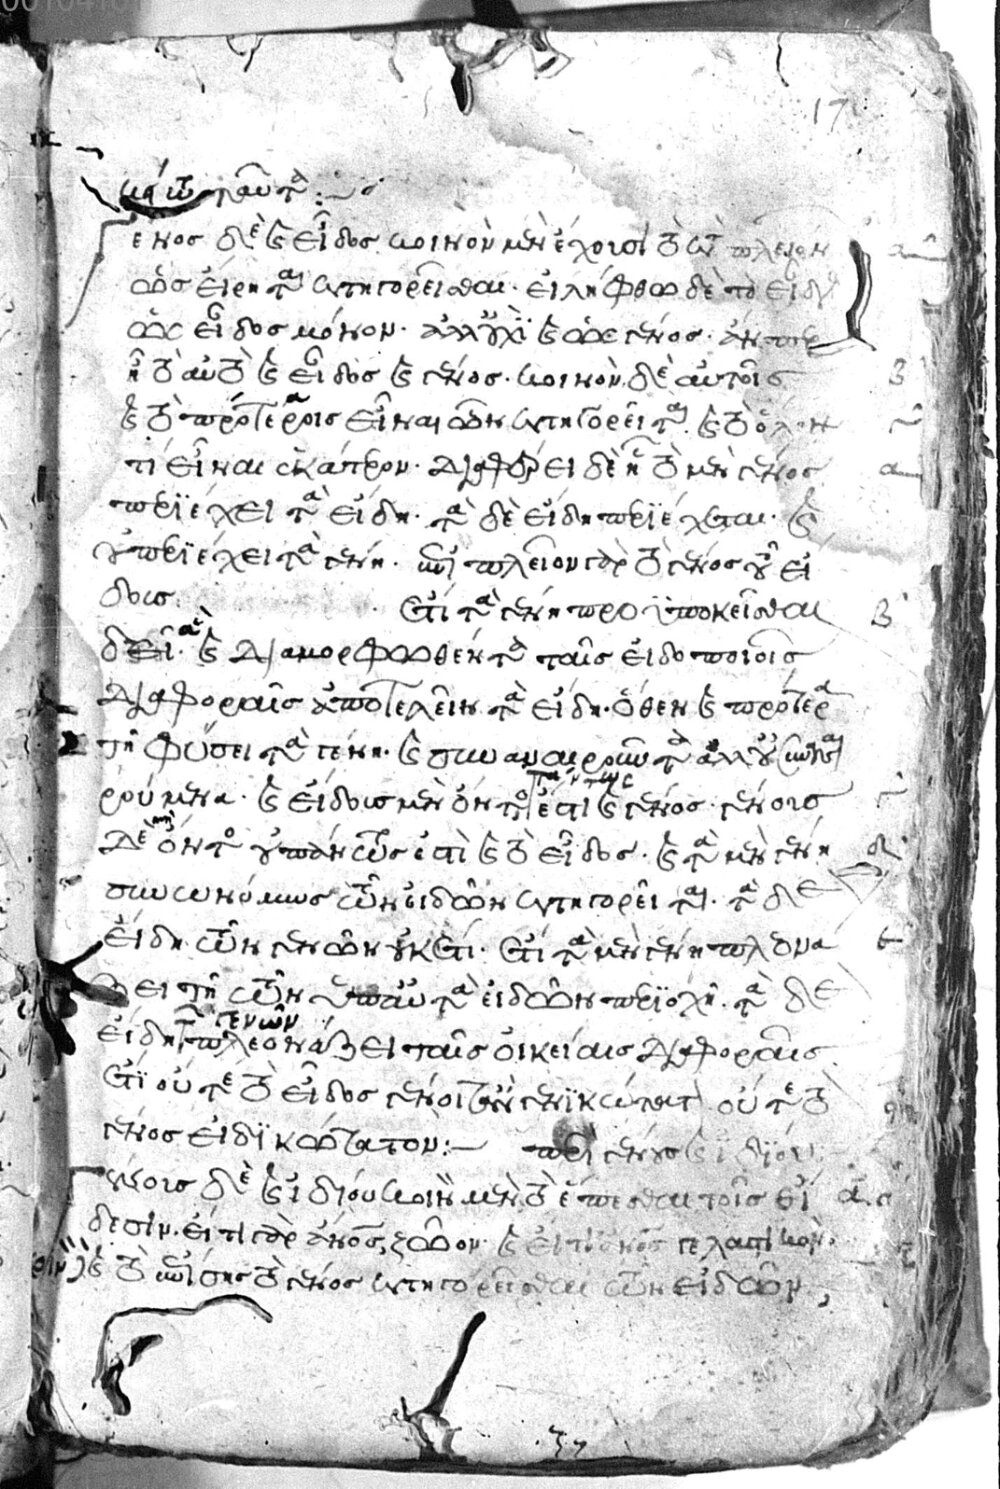 17
γένος δὲ καὶ εἶδος κοινὸν μὲν ἔχουσι τὸ κατὰ πλειόνων
ὡς εἴρηται κατηγορεῖσθαι· εἰλήφθω δὲ τὸ εἶδος
ὡς εἶδος μόνον· ἀλλ' οὐχὶ καὶ ὡς γένος· ἄνπερ
ᾖ τὸ αὐτὸ καὶ εἶδος καὶ γένος· κοινὸν δὲ αὐτοῖς
καὶ τὸ προτέροις εἶναι ὧν κατηγορεῖται καὶ τὸ ὅλον
τι εἶναι ἑκάτερον· διαφέρει δὲ ᾗ τὸ μὲν γένος
περιέχει τὰ εἴδη· τὰ δὲ εἴδη περιέχεται· καὶ
οὐ περιέχει τὰ γένη· ἐπὶ πλεῖον γὰρ τὸ γένος τοῦ εἴ
δους. ἔτι τὰ γένη προϋποκεῖσθαι
δεῖ· καὶ διαμορφωθέντα ταῖς εἰδοποιοῖς
διαφοραῖς ἀποτελεῖν τὰ εἴδη· ὅθεν καὶ πρότερα
τῇ φύσει τὰ γένη· καὶ συναναιροῦντα ἀλλ' οὐ συναναι
ρούμενα· καὶ εἴδους μὲν ὄντος πάντως ἔστι καὶ γένος· γένους
δὲ ὄντος οὐ πάντως ἔστι καὶ τὸ εἶδος· καὶ τὰ μὲν γένη
συνωνύμως τῶν εἰδῶν κατηγορεῖται· τὰ δὲ
εἴδη τῶν γενῶν οὐκέτι· ἔτι τὰ μὲν γένη πλεονά
ζει τῇ τῶν ὑπ' αὐτὰ εἰδῶν περιοχῇ· τὰ δὲ
εἴδη τῶν γενῶν πλεονάζει ταῖς οἰκείαις διαφοραῖς
ἔτι οὔτε τὸ εἶδος γένοιτ' ἂν γενικώτατον οὔτε τὸ
γένος εἰδικώτατον:— περὶ γένους καὶ ἰδίου:
γένους δὲ καὶ ἰδίου κοινὸν μὲν τὸ ἕπεσθαι τοῖς εἴ
δεσιν· εἴ τι γὰρ ἄνθρωπος, ζῶον· καὶ εἴ τι ἄνθρωπος γελαστικόν·
καὶ τὸ ἐπίσης τὸ γένος κατηγορεῖσθαι τῶν εἰδῶν,